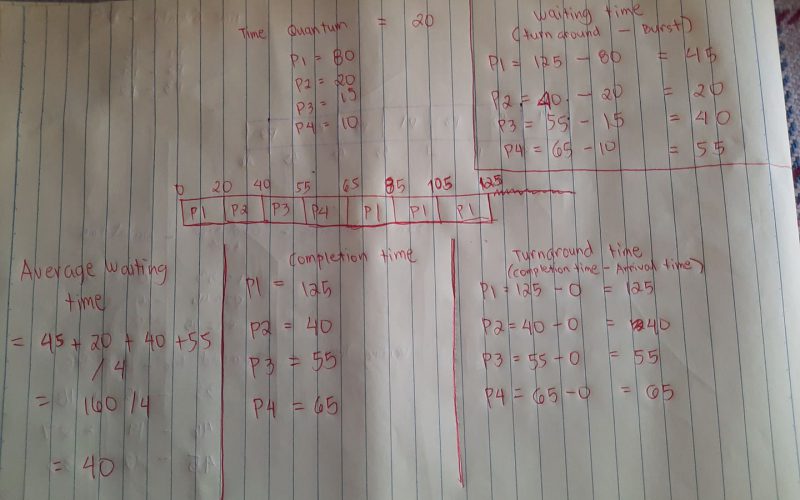 Time Quantum = 20
P1 = 80
P2 = 20
P3 = 15
P4 = 10
Waiting time
(turn around - Burst)
P1 = 125 - 80 = 45
P2 = 40 - 20 = 20
P3 = 55 - 15 = 40
P4 = 65 - 10 = 55
0 20 40 55 65 85 105 125
P1 P2 P3 P4 P1 P1 P1
Average waiting
time
= 45 + 20 + 40 + 55
/ 4
= 160 / 4
= 40
Completion time
P1 = 125
P2 = 40
P3 = 55
P4 = 65
Turnaround time
(completion time - Arrival time)
P1 = 125 - 0 = 125
P2 = 40 - 0 = 40
P3 = 55 - 0 = 55
P4 = 65 - 0 = 65